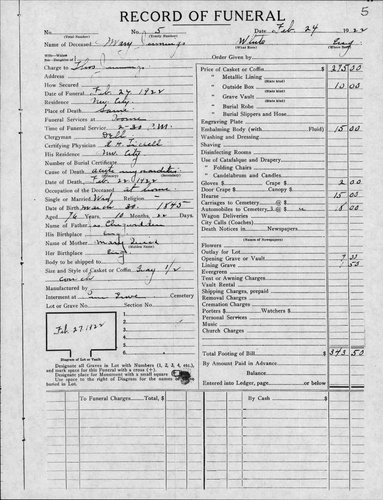 5
RECORD OF FUNERAL
No. 5 Date Feb. 24 1922
(County Number)
Name of Deceased Mary Jennings White
Wife—Widow
Son—Daughter of
(What Race) (Where Born)
Charge to Thos Jennings
Order Given by
Address
How Secured
Date of Funeral Feb 27 1922
Place of Death Same
Funeral Services at Home
Time of Funeral Service 2-30 P.M.
Clergyman Dell
Certifying Physician
His Residence City
Number of Burial Certificate
Cause of Death acute myocarditis
Date of Death Feb. 24 1922
Occupation of the Deceased at home
Single or Married Wid Religion
Date of Birth March 30 1845
Aged 76 Years 10 Months Days
Name of Father
His Birthplace Eng
Name of Mother Mary
Her Birthplace Eng
Body to be shipped to
Size and Style of Casket or Coffin Gray 1/2
couch
Manufactured by
Interment at Pine Grove Cemetery
Lot or Grave No. Section No.
Feb 27, 1922
1
2
3
4
5
6
7
8
Diagram of Lot or Vault
Designate all Graves in Lot with Numbers (1, 2, 3, 4, etc.),
and mark space for this Funeral with a cross (+).
Designate place for Monument with a small square
Use space to right of Diagram for the names of
buried in Lot.
Price of Casket or Coffin $ 275 00
" Metallic Lining
(State kind)
" Outside Box 10 00
(State kind)
" Grave Vault
(State kind)
" Burial Robe
" Burial Slippers and Hose
Engraving Plate
Embalming Body (with Fluid) 15 00
Washing and Dressing
Shaving
Disinfecting Rooms
Use of Catafalque and Drapery
" Folding Chairs
" Candelabrum and Candles
Gloves $ Crape $ 2 00
Door Crape $ Candy $
Hearse 15 00
Carriages to Cemetery @ $
Automobiles to Cemetery @ $ 18 00
Wagon Deliveries
City Calls or Coach
Death Notices in Newspapers
(Names of Newspapers)
Flowers
Outlay for Lot
Opening Grave or Vault
Lining Grave 1 50
Evergreen
Tent or Awning Charges
Vault Rental
Shipping Charges, prepaid
Removal Charges
Cremation Charges
Porters $ Watchers $
Personal Services
Music
Church Charges
Total Footing of Bill $ 343 50
By Amount Paid in Advance
Balance
Entered into Ledger, page or below
To Funeral Charges Total $ By Cash $